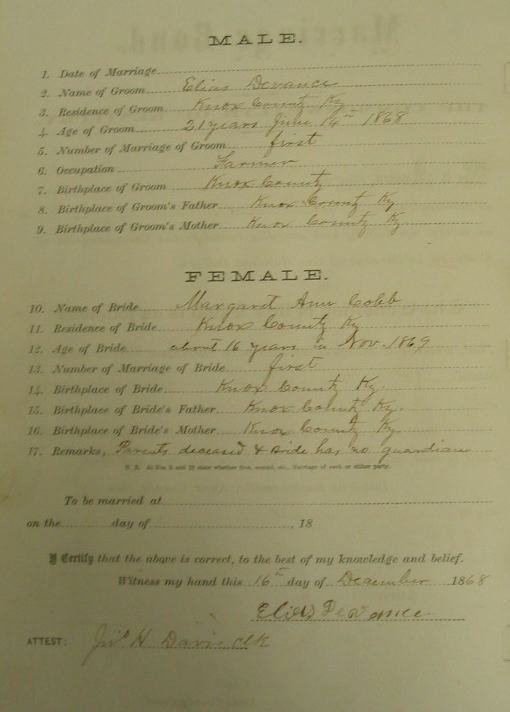 MALE.
1. Date of Marriage
2. Name of Groom Elias Devance
3. Residence of Groom Knox County Ky
4. Age of Groom 21 years June 14th 1868
5. Number of Marriage of Groom first
6. Occupation Farmer
7. Birthplace of Groom Knox County
8. Birthplace of Groom's Father Knox County Ky
9. Birthplace of Groom's Mother Knox County Ky
FEMALE.
10. Name of Bride Margaret Ann Cobb
11. Residence of Bride Knox County Ky
12. Age of Bride about 16 years in Nov. 1869
13. Number of Marriage of Bride first
14. Birthplace of Bride Knox County Ky.
15. Birthplace of Bride's Father Knox County Ky.
16. Birthplace of Bride's Mother Knox County Ky
17. Remarks, Parents deceased & bride has no guardian
N. B. At Nos. 5 and 13 state whether first, second, etc., Marriage of each or either party.
To be married at
on the day of , 18
I Certify that the above is correct, to the best of my knowledge and belief.
Witness my hand this 16th day of December 1868
Elias Devance
ATTEST: H Davis clk